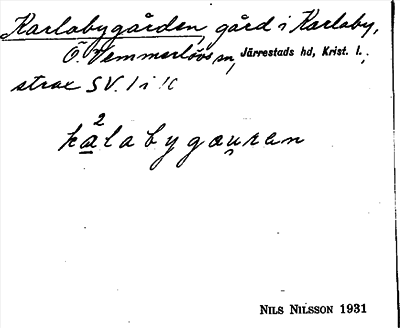 Karlabygården, gård i Karlaby,
Ö. Vemmerlövs sn, Järrestads hd, Krist. l.,
strax SV. l i K
2
kalabygau̯ren
NILS NILSSON 1931